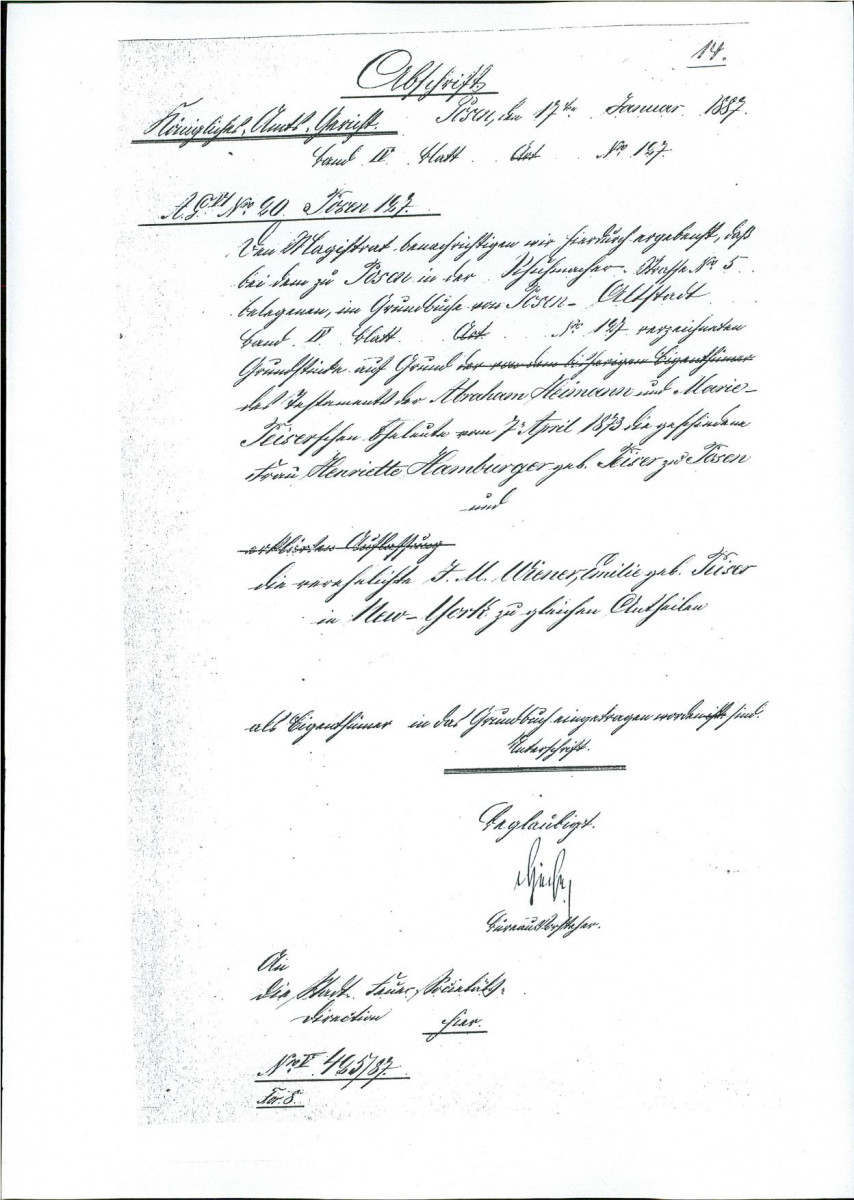 14.
Abschrift
Königliches Amts-Gericht. Posen, den 17ten Januar 1887.
Band IV Blatt Art No 127.
No 20. Posen 127.
Den Magistrat benachrichtigen wir hierdurch ergebenst, daß
bei dem zu Posen in der Schuhmacher-Straße No 5
belegenen, im Grundbuche von Posen-Altstadt
Band IV Blatt Art No 127 verzeichneten
Grundstücke auf Grund der von dem bisherigen Eigenthümer
des Testaments der Abraham Heimann und Marie-
Peiser'schen Eheleute vom 7. April 1873 die geschiedene
Frau Henriette Hamburger geb. Peiser zu Posen
und
erklärten Auflassung
die verehelichte J. M. Wiener, Emilie geb. Peiser
in New-York zu gleichen Antheilen
als Eigenthümer in das Grundbuch eingetragen worden ist sind.
Unterschrift.
Beglaubigt.
Bureauvorsteher.
An
die Stadt-Feuer-Societäts-
Direction hier.
No V 425/87.